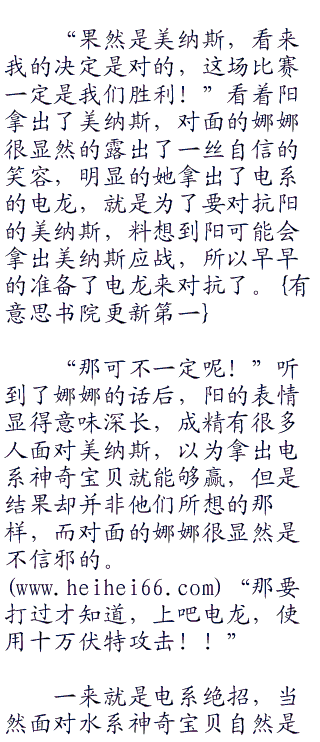 “果然是美纳斯，看来
我的决定是对的，这场比赛
一定是我们胜利！”看着阳
拿出了美纳斯，对面的娜娜
很显然的露出了一丝自信的
笑容，明显的她拿出了电系
的电龙，就是为了要对抗阳
的美纳斯，料想到阳可能会
拿出美纳斯应战，所以早早
的准备了电龙来对抗了。{有
意思书院更新第一}
“那可不一定呢！”听
到了娜娜的话后，阳的表情
显得意味深长，成精有很多
人面对美纳斯，以为拿出电
系神奇宝贝就能够赢，但是
结果却并非他们所想的那
样，而对面的娜娜很显然是
不信邪的。
(www.heihei66.com)“那要
打过才知道，上吧电龙，使
用十万伏特攻击！！”
一来就是电系绝招，当
然面对水系神奇宝贝自然是